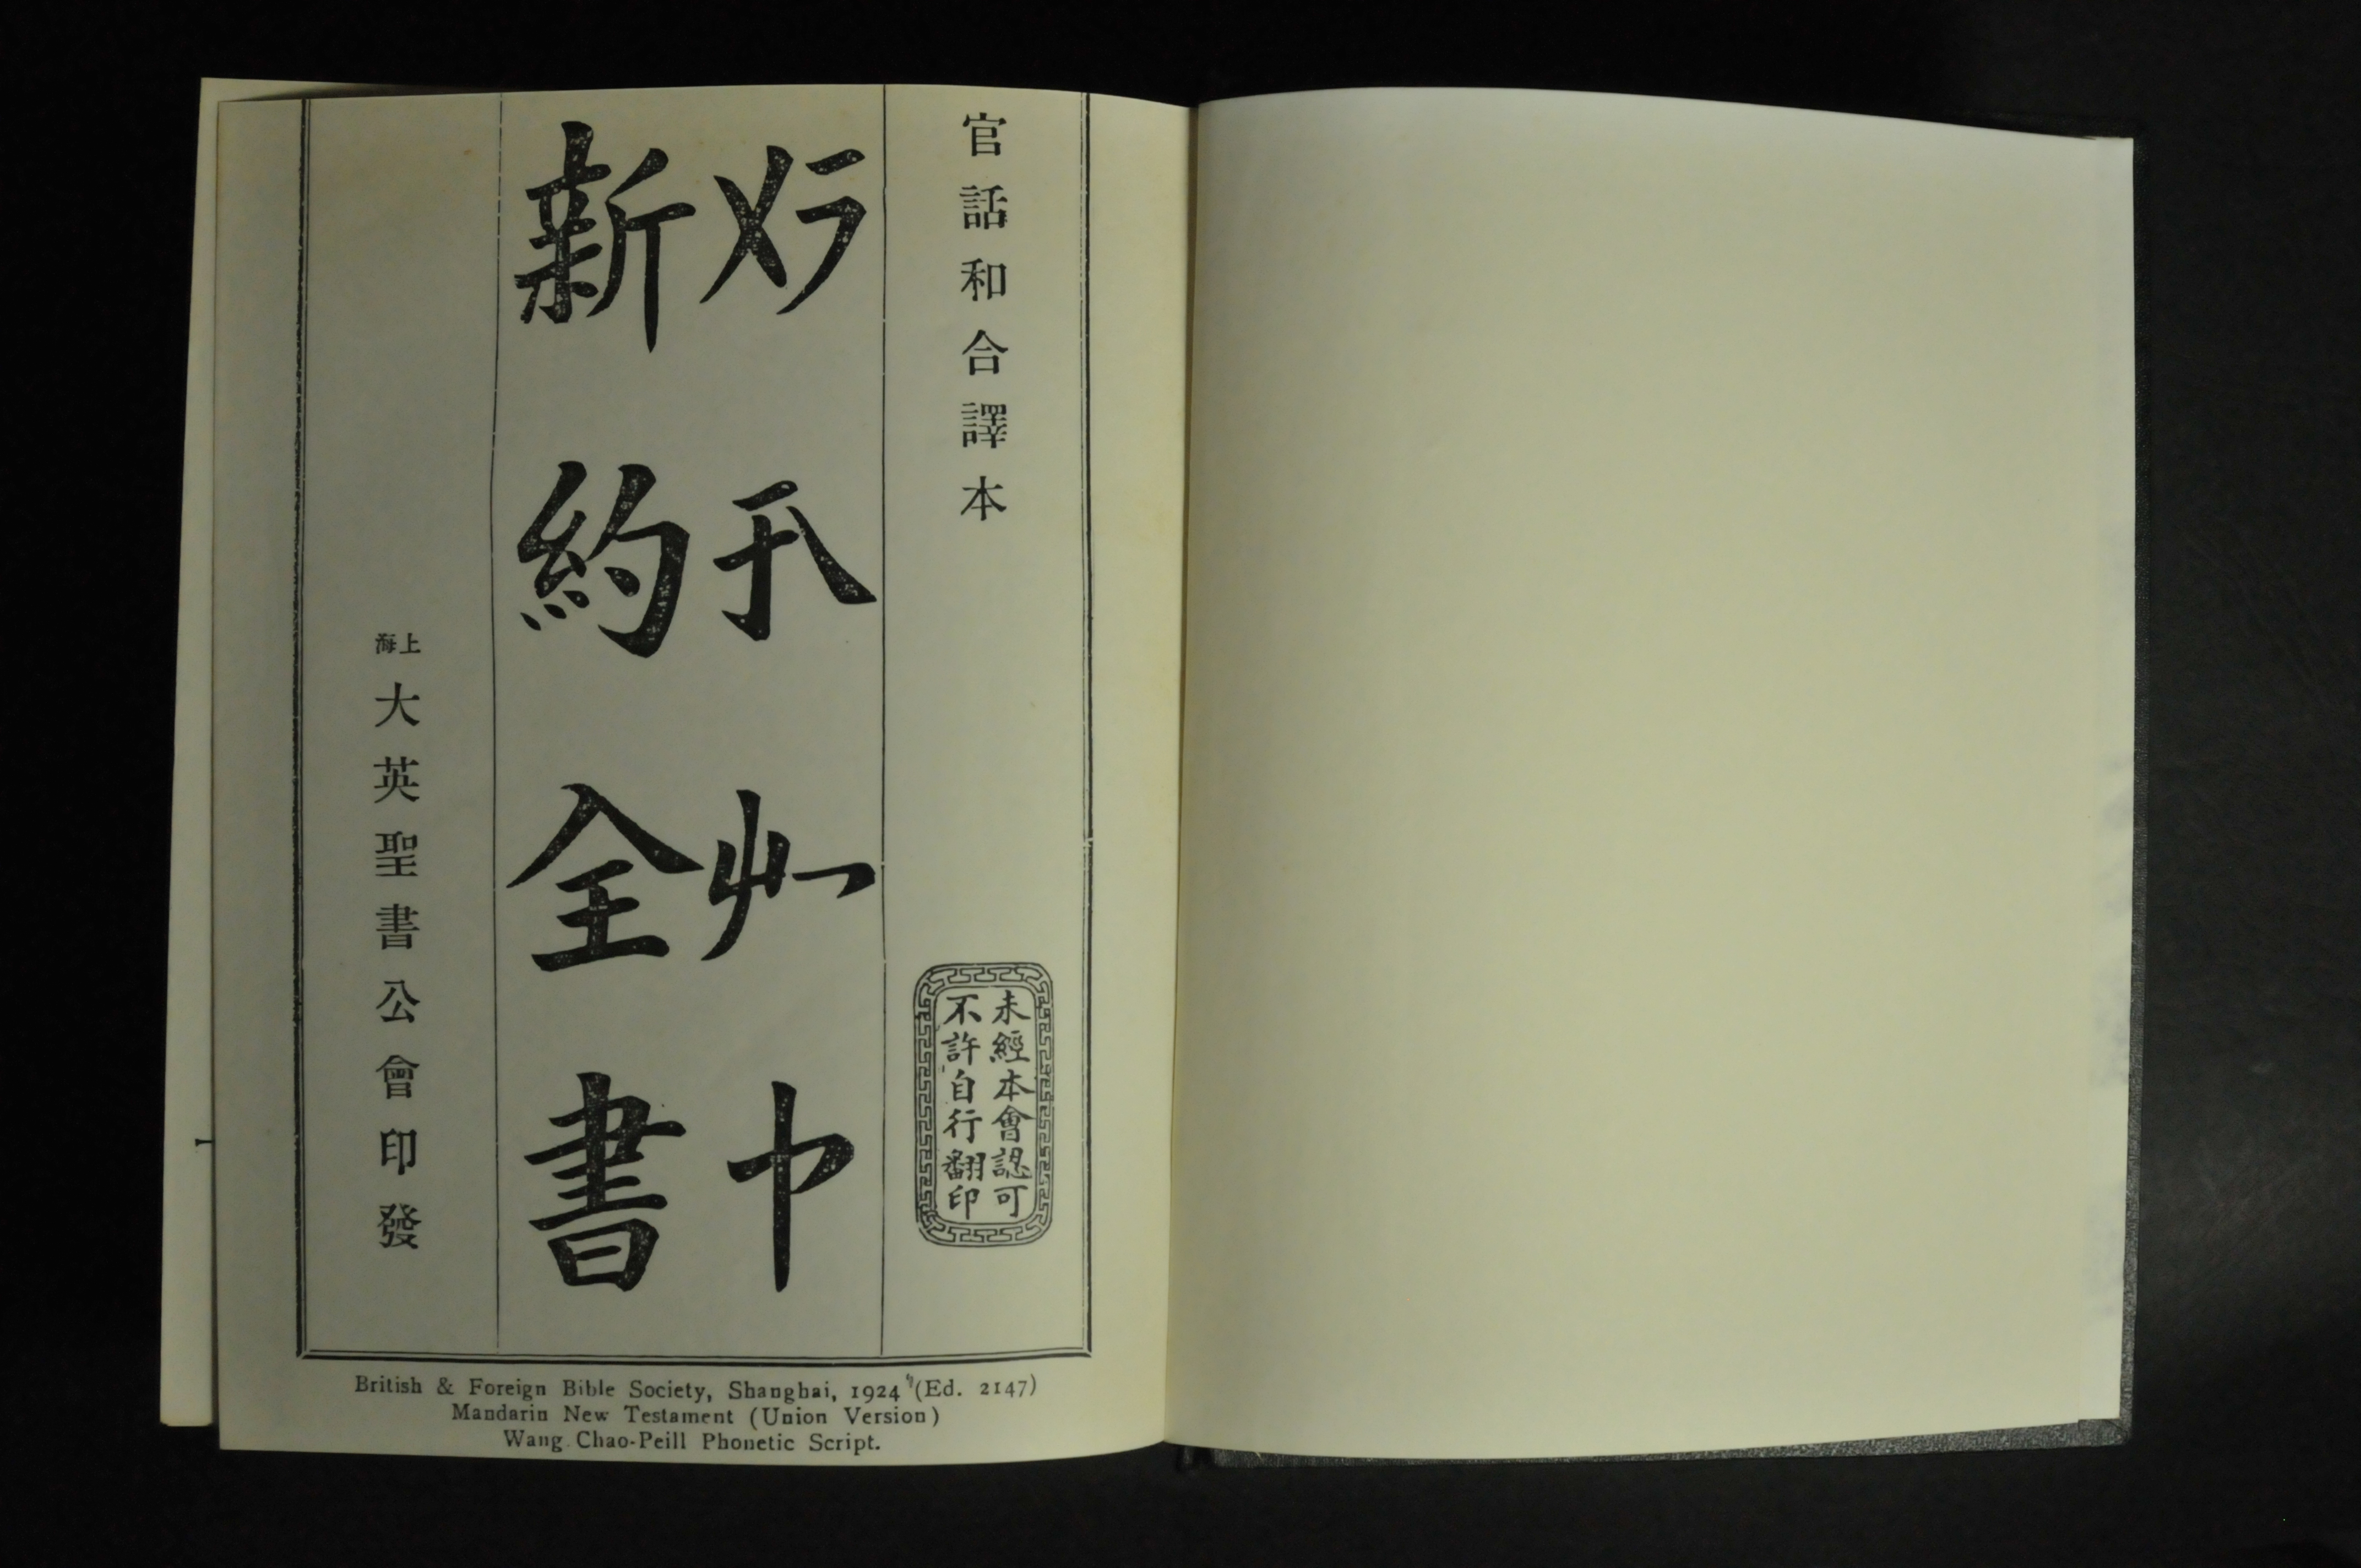 官話和合譯本
未經本會認可
不許自行翻印
新約全書
上海
大英聖書公會印發
British & Foreign Bible Society, Shanghai, 1924 (Ed. 2147)
Mandarin New Testament (Union Version)
Wang Chao-Peill Phonetic Script.